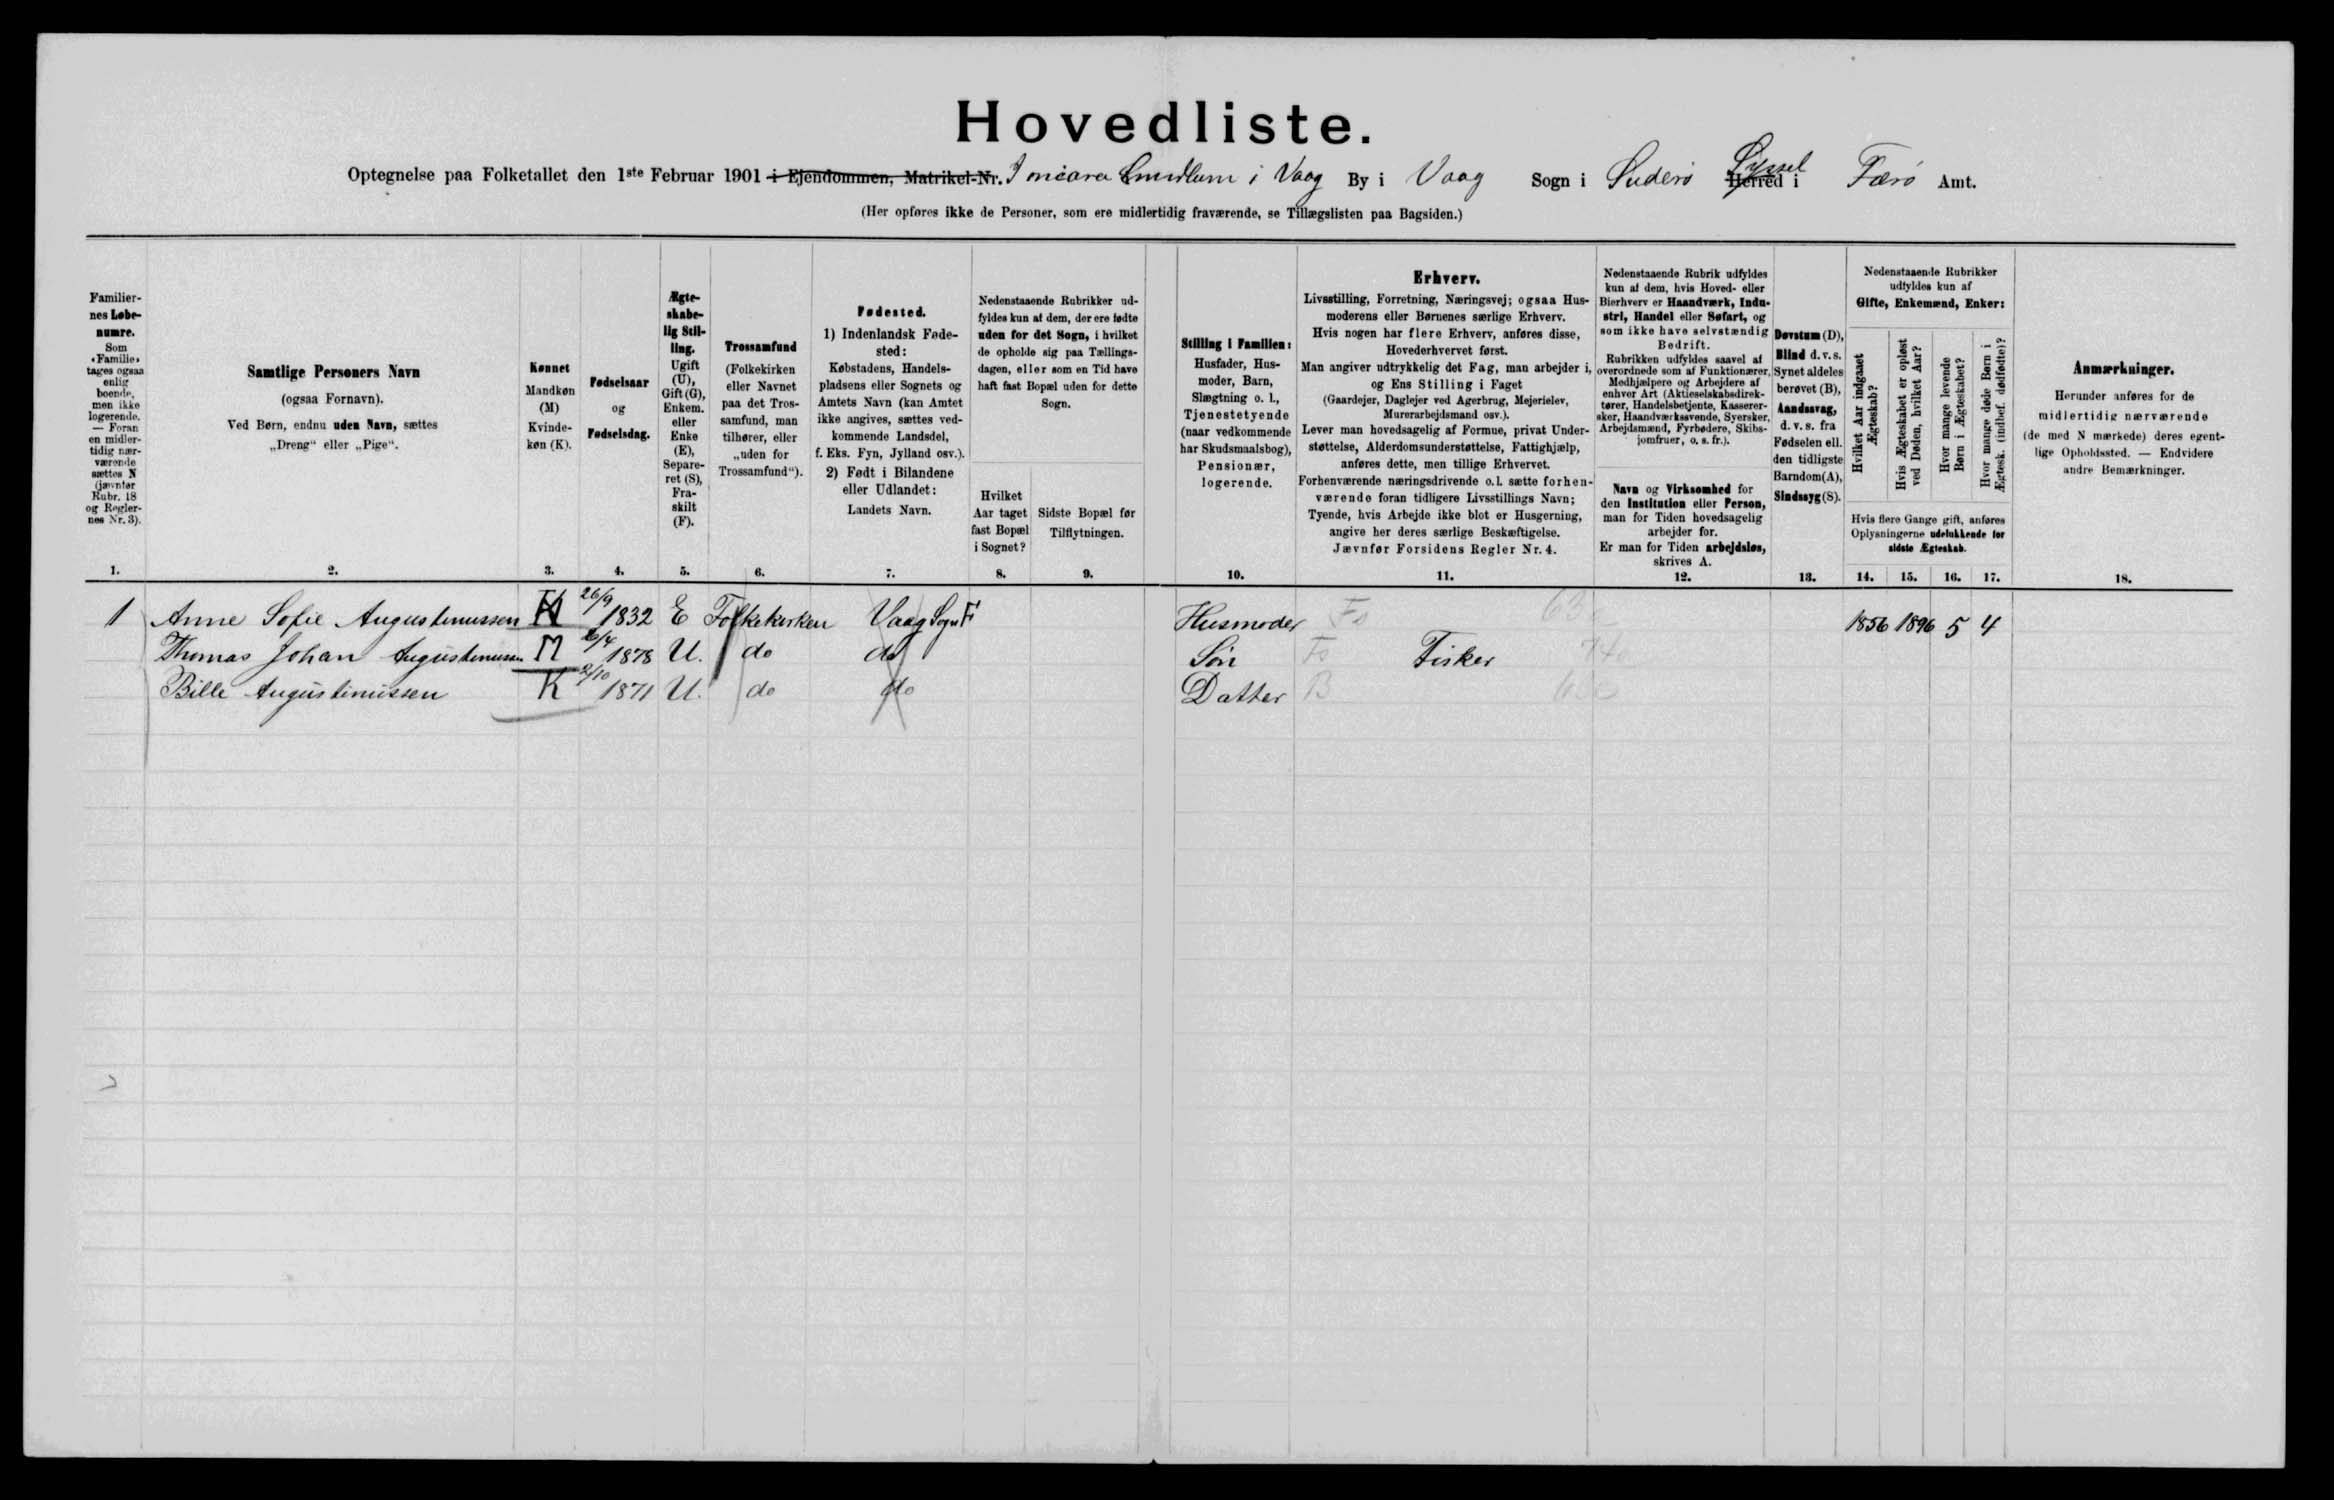 Hovedliste.
Optegnelse paa Folketallet den 1ste Februar 1901 i Ejendommen, Matrikel-Nr. i Vaag By i Vaag Sogn i Suderö Syssel Herred i Færö Amt.
(Her opføres ikke de Personer, som ere midlertidig fraværende, se Tillægslisten paa Bagsiden.)
Familier-
nes Løbe-
numre.
Som
«Familie»
tages ogsaa
enlig
boende,
men ikke
logerende.
— Foran
en midler-
tidig nær-
værende
sættes N
(jævnfør
Rubr. 18
og Regler-
nes Nr. 3).
1.
Samtlige Personers Navn
(ogsaa Fornavn).
Ved Børn, endnu uden Navn, sættes
„Dreng“ eller „Pige“.
2.
Kønnet
Mandkøn
(M)
Kvinde-
køn (K).
3.
Fødselsaar
og
Fødselsdag.
4.
Ægte-
skabe-
lig Stil-
ling.
Ugift
(U),
Gift (G),
Enkem.
eller
Enke
(E),
Separe-
ret (S),
Fra-
skilt
(F).
5.
Trossamfund
(Folkekirken
eller Navnet
paa det Tros-
samfund, man
tilhører, eller
„uden for
Trossamfund“).
6.
Fødested.
1) Indenlandsk Føde-
sted:
Købstadens, Handels-
pladsens eller Sognets og
Amtets Navn (kan Amtet
ikke angives, sættes ved-
kommende Landsdel,
f. Eks. Fyn, Jylland osv.).
2) Født i Bilandene
eller Udlandet:
Landets Navn.
7.
Nedenstaaende Rubrikker ud-
fyldes kun af dem, der ere fødte
uden for det Sogn, i hvilket
de opholde sig paa Tællings-
dagen, eller som en Tid have
haft fast Bopæl uden for dette
Sogn.
Hvilket
Aar taget
fast Bopæl
i Sognet?
8.
Sidste Bopæl før
Tilflytningen.
9.
Stilling i Familien:
Husfader, Hus-
moder, Barn,
Slægtning o. l.,
Tjenestetyende
(naar vedkommende
har Skudsmaalsbog),
Pensionær,
logerende.
10.
Erhverv.
Livsstilling, Forretning, Næringsvej; ogsaa Hus-
moderens eller Børnenes særlige Erhverv.
Hvis nogen har flere Erhverv, anføres disse,
Hovederhvervet først.
Man angiver udtrykkelig det Fag, man arbejder i,
og Ens Stilling i Faget
(Gaardejer, Daglejer ved Agerbrug, Mejerielev,
Murerarbejdsmand osv.).
Lever man hovedsagelig af Formue, privat Under-
støttelse, Alderdomsunderstøttelse, Fattighjælp,
anføres dette, men tillige Erhvervet.
Forhenværende næringsdrivende o.l. sætte forhen-
værende foran tidligere Livsstillings Navn;
Tyende, hvis Arbejde ikke blot er Husgerning,
angive her deres særlige Beskæftigelse.
Jævnfør Forsidens Regler Nr. 4.
11.
Nedenstaaende Rubrik udfyldes
kun af dem, hvis Hoved- eller
Bierhverv er Haandværk, Indu-
stri, Handel eller Søfart, og
som ikke have selvstændig
Bedrift.
Rubrikken udfyldes saavel af
overordnede som af Funktionærer,
Medhjælpere og Arbejdere af
enhver Art (Aktieselskabsdirek-
tører, Handelsbetjente, Kasserer-
sker, Haandværkssvende, Syersker,
Arbejdsmænd, Fyrbødere, Skibs-
jomfruer, o. s. fr.).
Navn og Virksomhed for
den Institution eller Person,
man for Tiden hovedsagelig
arbejder for.
Er man for Tiden arbejdsløs,
skrives A.
12.
Døvstum (D),
Blind d. v. s.
Synet aldeles
berøvet (B),
Aandssvag,
d. v. s. fra
Fødselen ell.
den tidligste
Barndom (A),
Sindssyg (S).
13.
Nedenstaaende Rubrikker
udfyldes kun af
Gifte, Enkemænd, Enker:
Hvilket Aar indgaaet
Ægteskab?
Hvis Ægteskabet er opløst
ved Døden, hvilket Aar?
Hvor mange levende
Børn i Ægteskabet?
Hvor mange døde Børn i
Ægtesk. (indbef. dødfødte)?
Hvis flere Gange gift, anføres
Oplysningerne udelukkende for
sidste Ægteskab.
14. 15. 16. 17.
Anmærkninger.
Herunder anføres for de
midlertidig nærværende
(de med N mærkede) deres egent-
lige Opholdssted. — Endvidere
andre Bemærkninger.
18.
1 Anne Sofie Augustinussen K 26/9 1832 E Folkekirken Vaag Sogn F Husmoder Fo 63 1856 1896 5 4
Thomas Johan Augustinussen M 26/4 1878 U. do do Sön Fo Fisker
Bille Augustinussen K 2/10 1871 U. do do Datter B